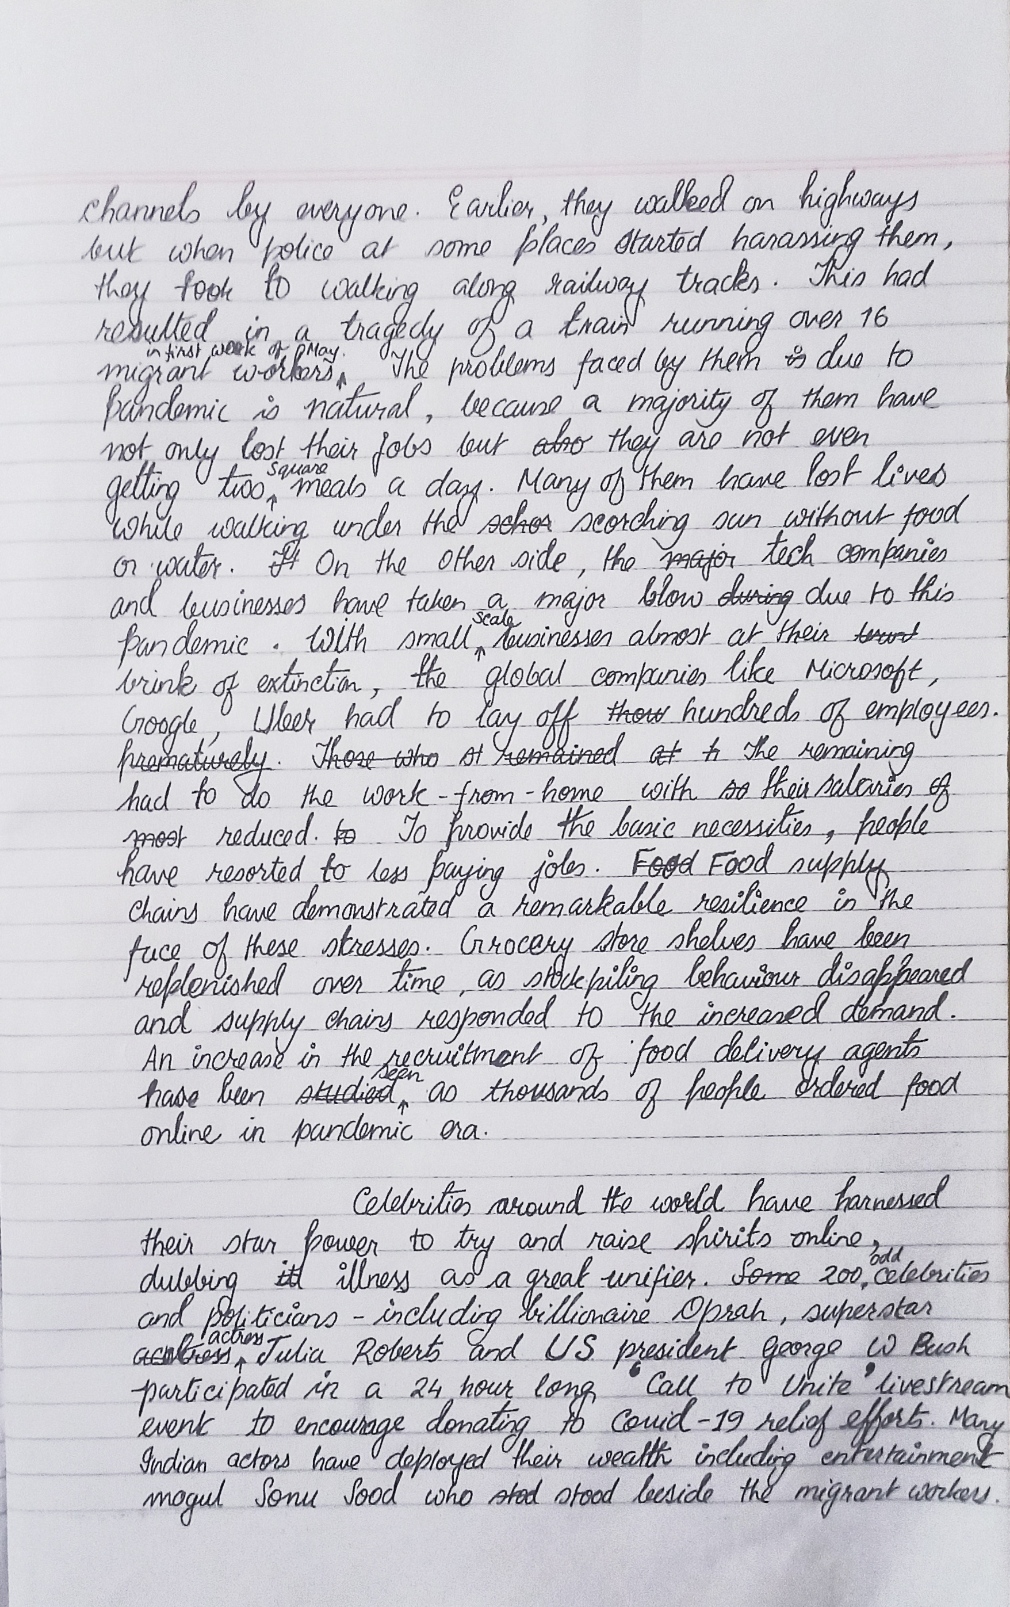 channels by everyone. Earlier, they walked on highways
but when police at some places started harassing them,
they took to walking along railway tracks. This had
resulted in a tragedy of a train running over 16
in first week of May.
migrant workers. The problems faced by them is due to
pandemic is natural, because a majority of them have
not only lost their jobs but also they are not even
square
getting two meals a day. Many of them have lost lives
while walking under the schor scorching sun without food
or water. If On the other side, the major tech companies
and businesses have taken a major blow during due to this
scale
pandemic. With small businesses almost at their
brink of extinction, the global companies like Microsoft,
Google, Uber had to lay off thow hundreds of employees.
prematurely. Those who st remained at h The remaining
had to do the work-from-home with so their salaries of
most reduced. to To provide the basic necessities, people
have resorted to less paying jobs. Food Food supply
chains have demonstrated a remarkable resilience in the
face of these stresses. Grocery store shelves have been
replenished over time, as stockpiling behaviour disappeared
and supply chains responded to the increased demand.
An increase in the recruitment of food delivery agents
seen
have been studied as thousands of people ordered food
online in pandemic era.
Celebrities around the world have harnessed
their star power to try and raise spirits online,
odd
dubbing illness as a great unifier. Some 200 celebrities
and politicians - including billionaire Oprah, superstar
actress
Julia Roberts and US president George W Bush
participated in a 24 hour long 'Call to Unite' livestream
event to encourage donating to Covid-19 relief efforts. Many
Indian actors have deployed their wealth including entertainment
mogul Sonu Sood who stod stood beside the migrant workers.